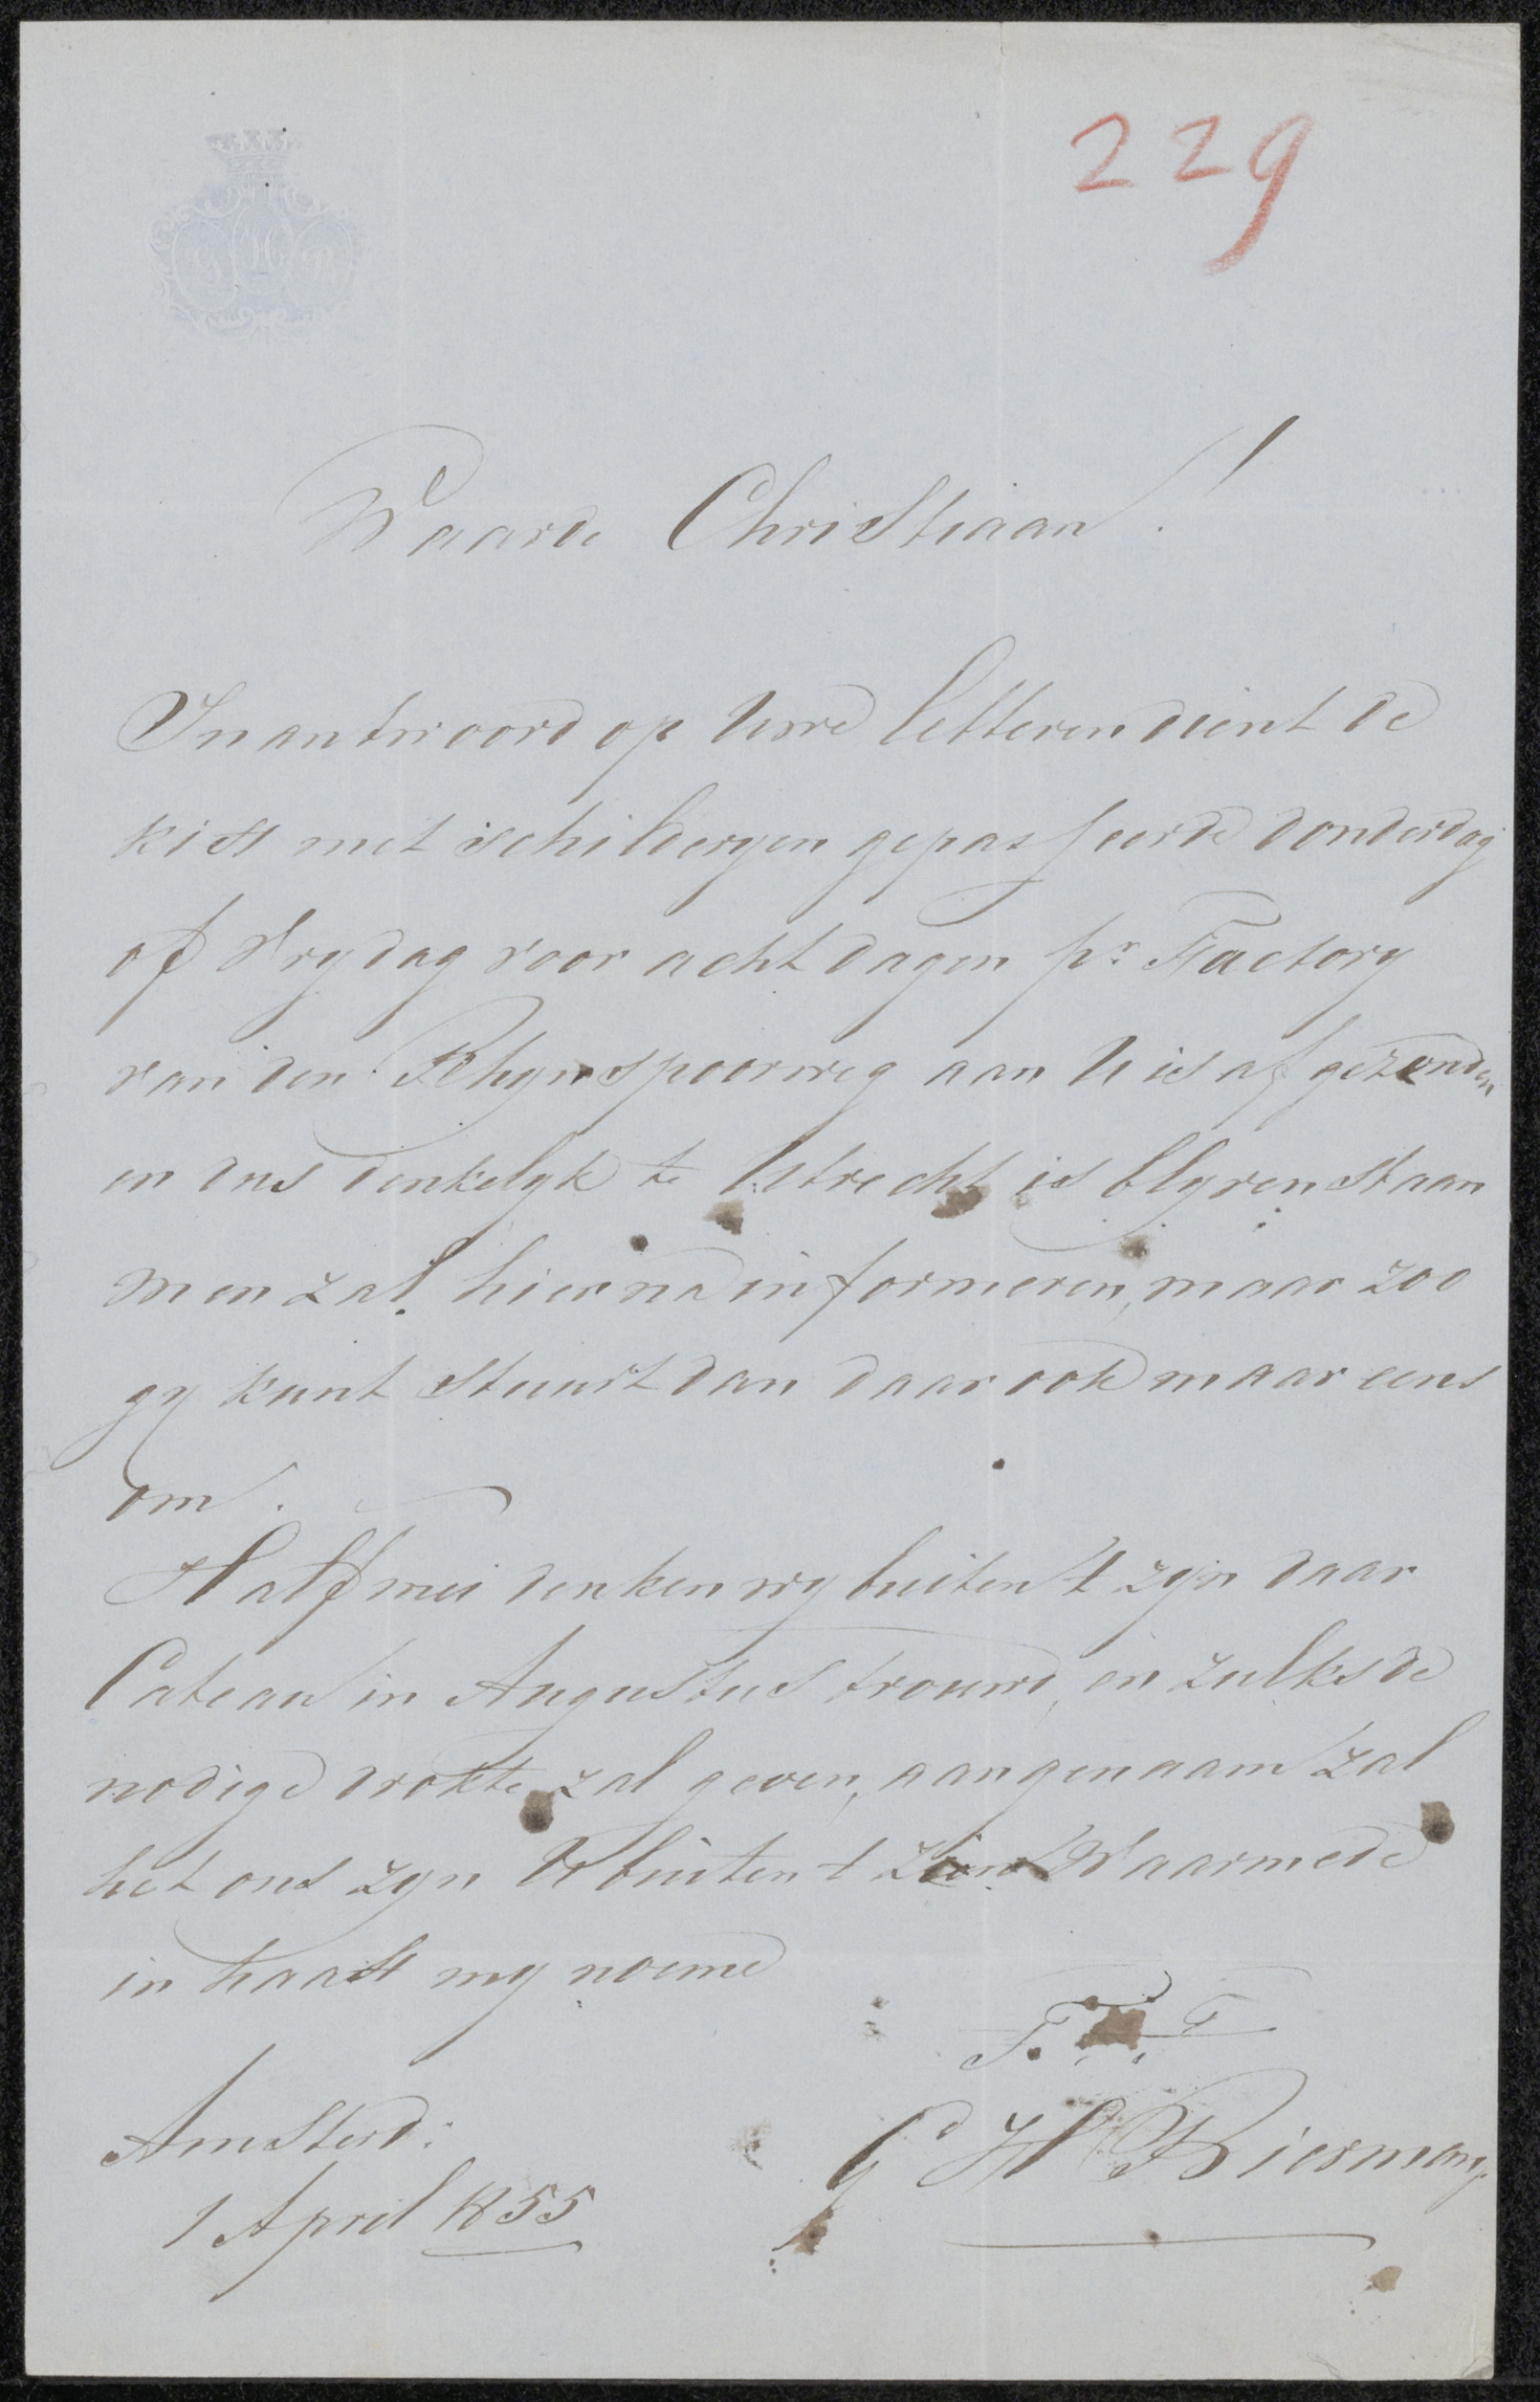 229
GHB
Waarde Christiaan!
In antwoord op Uwe letteren dient de
kist met schilderyen gepasseerde donderdag
of Vrydag voor acht dagen pr. Factory
van den Rhynspoorweg aan U is afgezonden
en dus denkelyk te Utrecht is blyven staan
men zal hierna informeren, maar zoo
gy kunt stuurt dan daar ook maar eens
om.
Half mei denken wy buiten t zyn daar
Cateau in Augustus trouwd, en zulks de
nodige drokte zal geven, aangenaam zal
het ons zyn U buiten t zien Waarmede
in haast my noeme
T. T.
Amsterd:
G H Bierman
1 April 1855